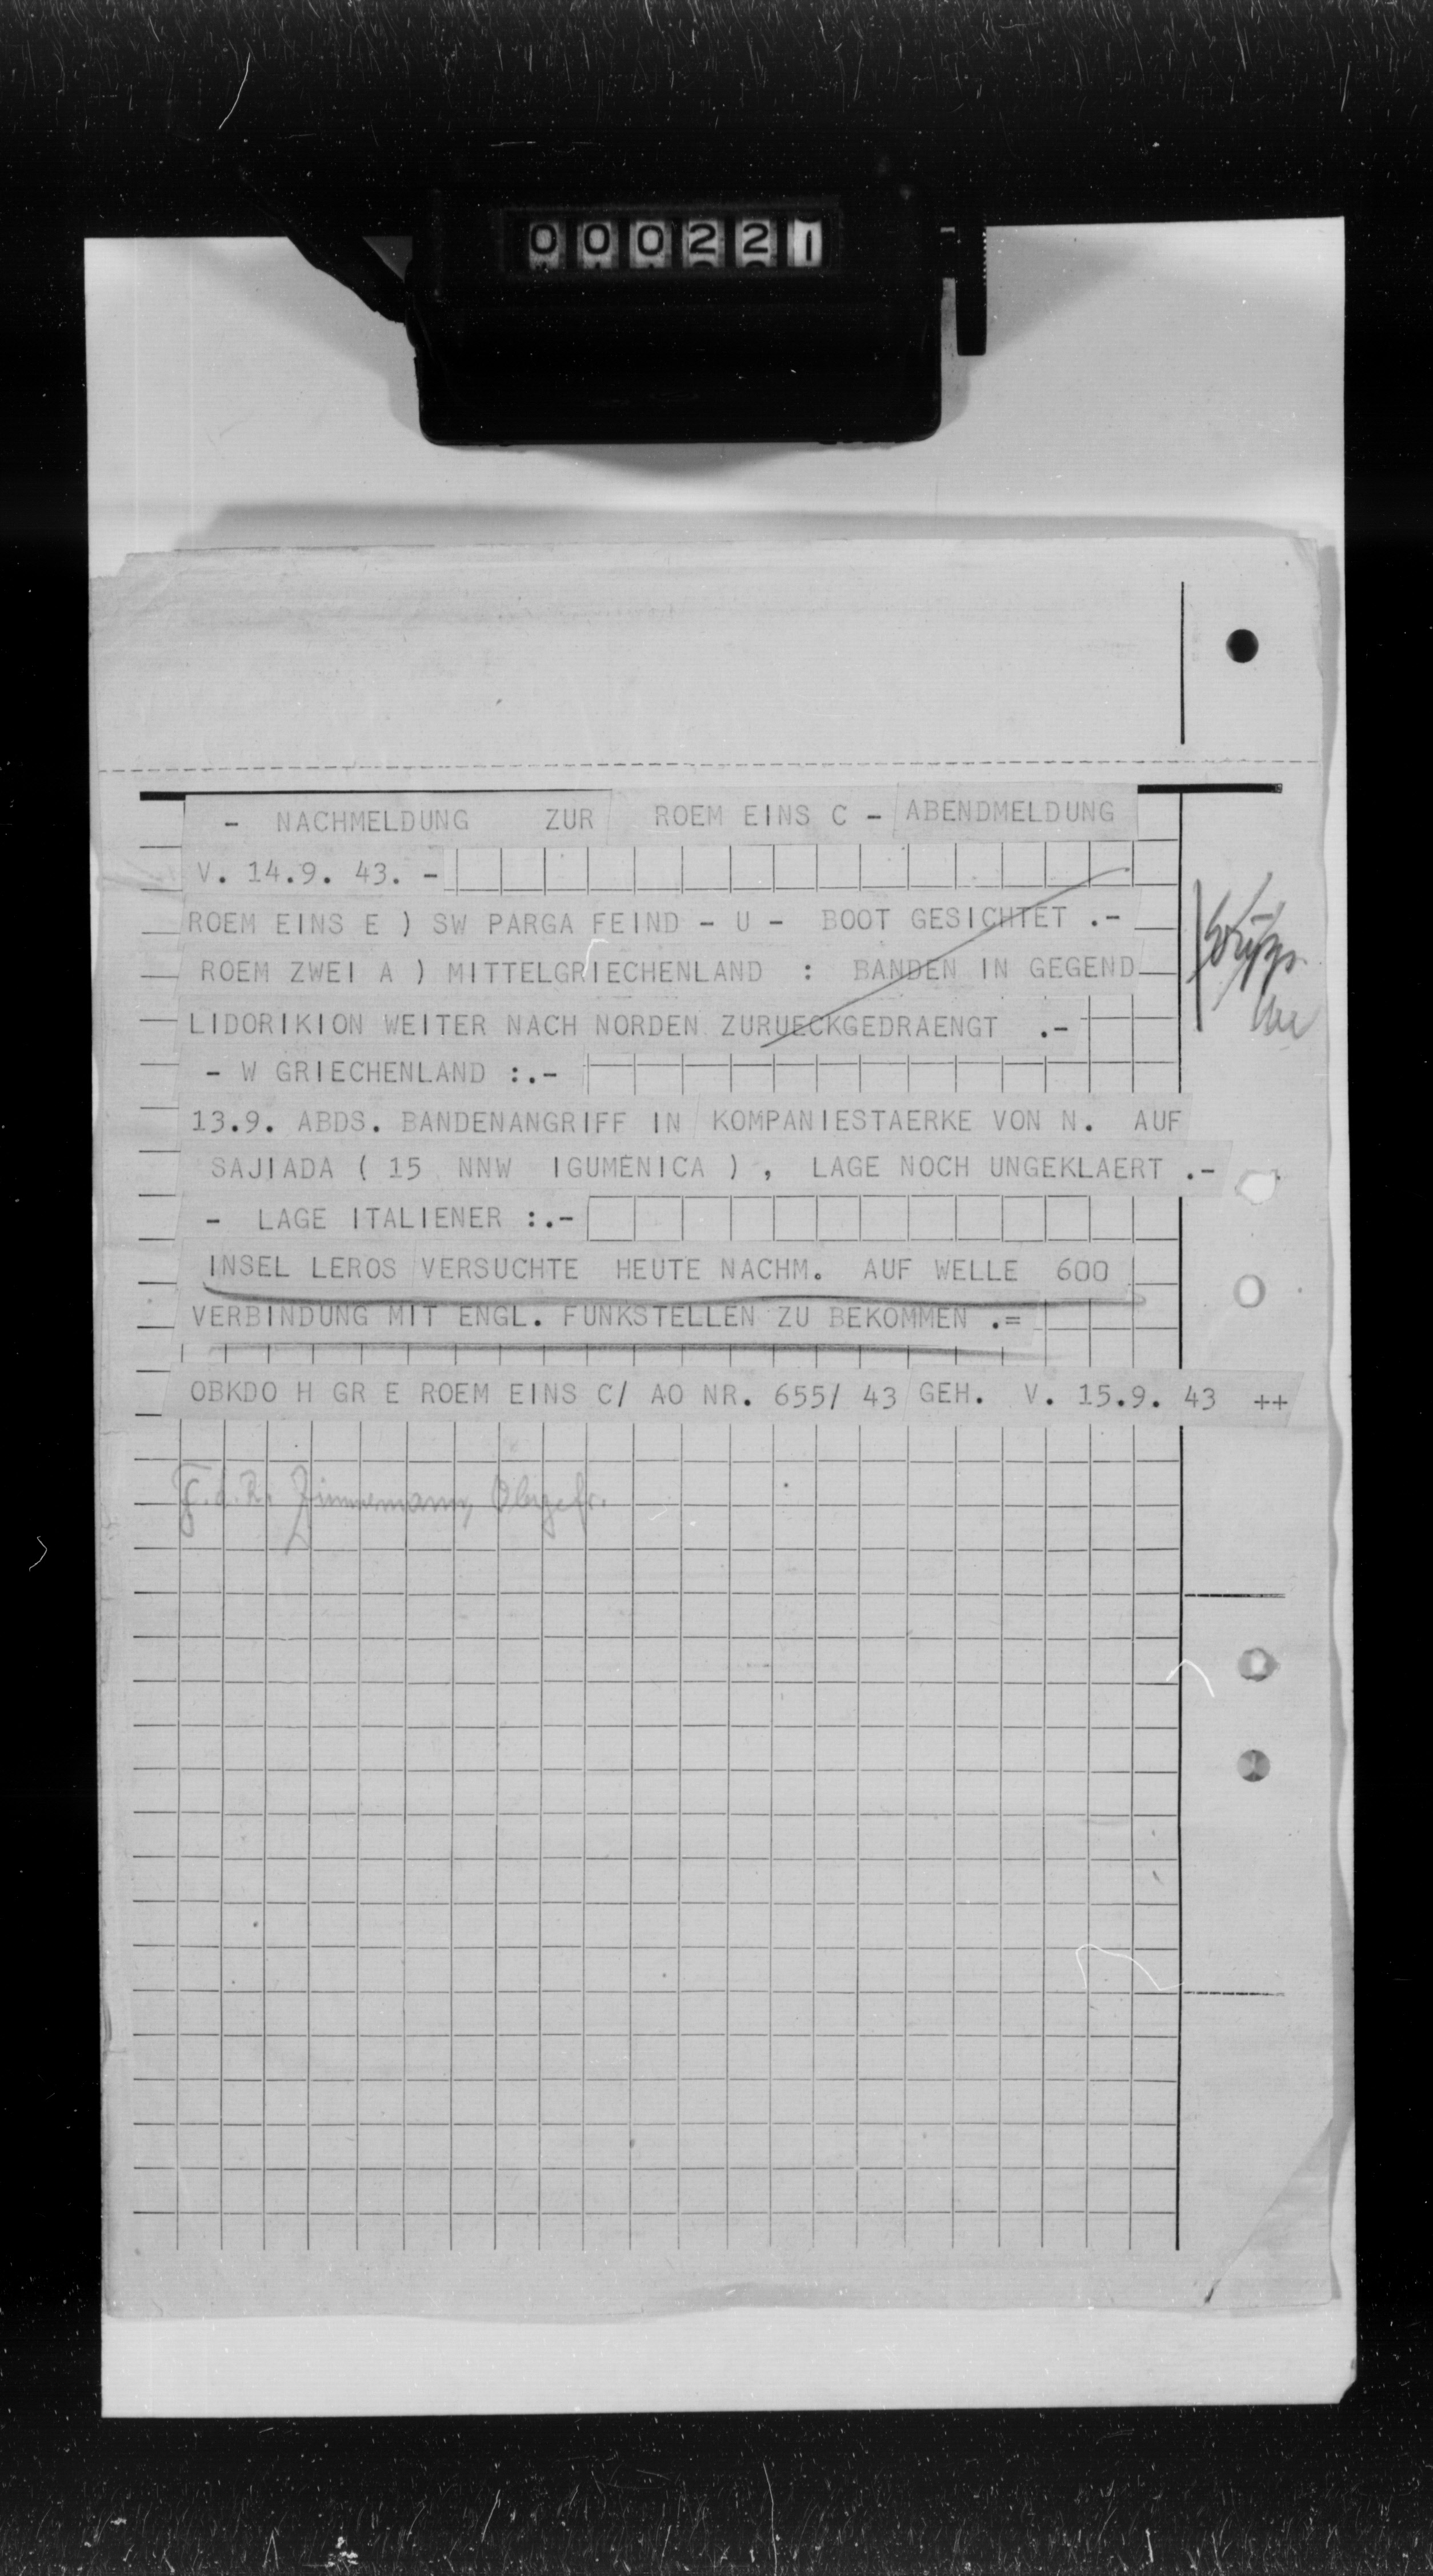 000221
- NACHMELDUNG ZUR ROEM EINS C - ABENDMELDUNG
V. 14.9. 43. -
ROEM EINS E ) SW PARGA FEIND - U - BOOT GESICHTET .-
ROEM ZWEI A ) MITTELGRIECHENLAND : BANDEN IN GEGEND
LIDORIKION WEITER NACH NORDEN ZURUECKGEDRAENGT .-
- W GRIECHENLAND :.-
13.9. ABDS. BANDENANGRIFF IN KOMPANIESTAERKE VON N. AUF
SAJIADA ( 15 NNW IGUMENICA ) , LAGE NOCH UNGEKLAERT .-
- LAGE ITALIENER :.-
INSEL LEROS VERSUCHTE HEUTE NACHM. AUF WELLE 600
VERBINDUNG MIT ENGL. FUNKSTELLEN ZU BEKOMMEN .=
OBKDO H GR E ROEM EINS C/ AO NR. 655/ 43 GEH. V. 15.9. 43 ++
F.d.R. Zimmermann, Obgefr.